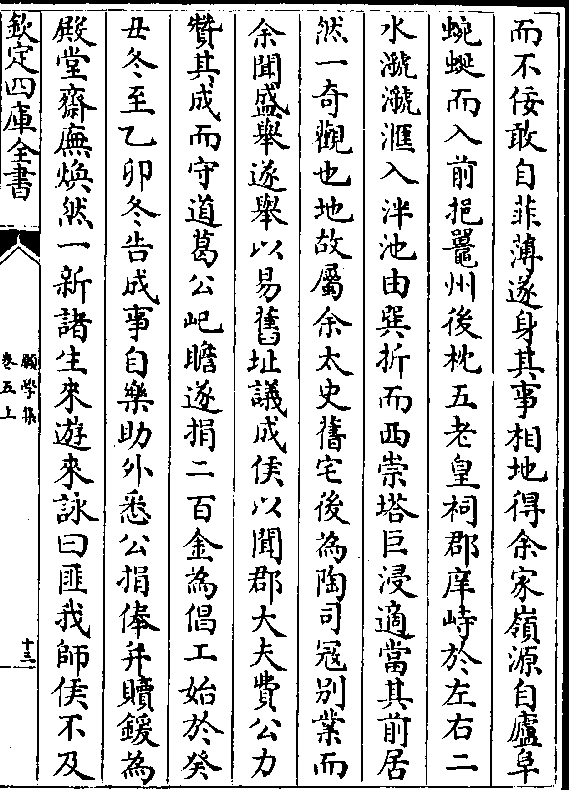 而不佞敢自菲薄遂身其事相地得余家嶺源自廬阜
蜿蜒而入前挹鼉州後枕五老皇祠郡庠峙於左右二
水㶁㶁滙入泮池由巽折而西崇塔巨浸適當其前居
然一奇觀也地故屬余太史舊宅後為陶司冦别業而
余聞盛舉遂舉以易舊址議成侯以聞郡大夫費公力
贊其成而守道葛公屺瞻遂捐二百金為倡工始於癸
丑冬至乙卯冬告成事自樂助外悉公捐俸并贖鍰為
殿堂齋廡煥然一新諸生來遊來詠曰匪我師侯不及
欽定四庫全書
願學集
卷五上
十三